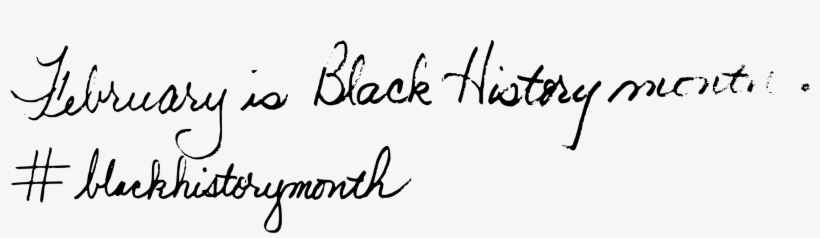 February is Black History month.
#blackhistorymonth